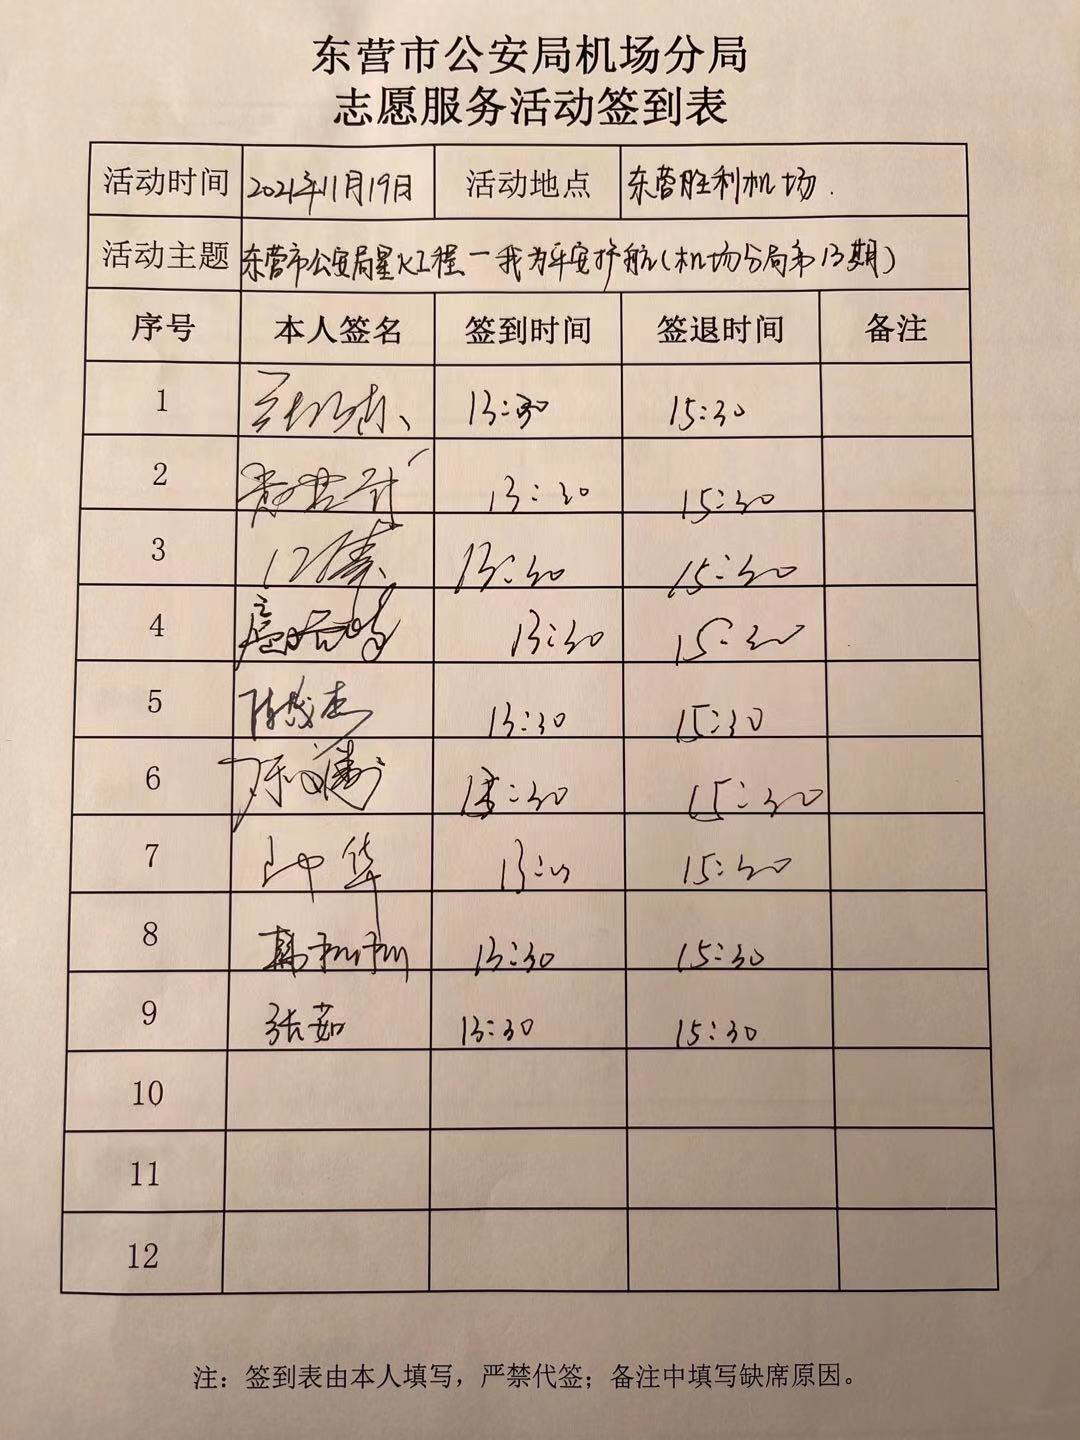 东营市公安局机场分局
志愿服务活动签到表
活动时间 2021年11月19日 活动地点 东营胜利机场.
活动主题 东营市公安局星火工程一我为平安护航(机场分局第13期)
序号 本人签名 签到时间 签退时间 备注
1 13:30 15:30
2 13:30 15:30
3 13:30 15:30
4 13:30 15:30
5 13:30 15:30
6 13:30 15:30
7 15:30
8 13:30 15:30
9 张茹 13:30 15:30
10
11
12
注：签到表由本人填写，严禁代签；备注中填写缺席原因。